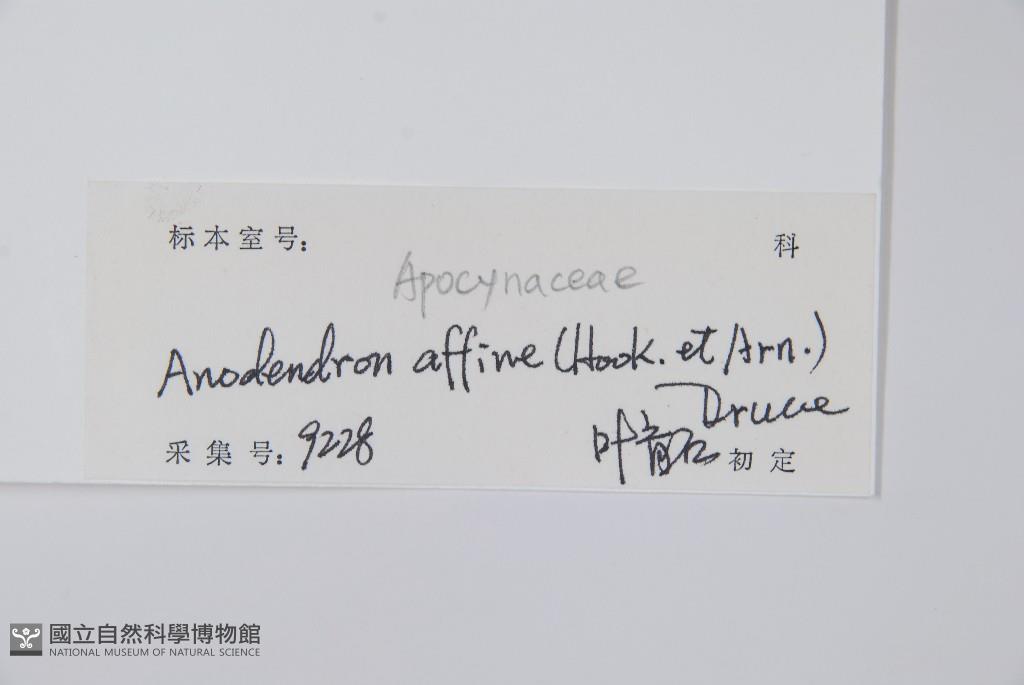 标本室号: 科
Apocynaceae
Anodendron affine (Hook. et Arn.)
Druce
采集号: 9228 叶 初定
國立自然科學博物館
NATIONAL MUSEUM OF NATURAL SCIENCE